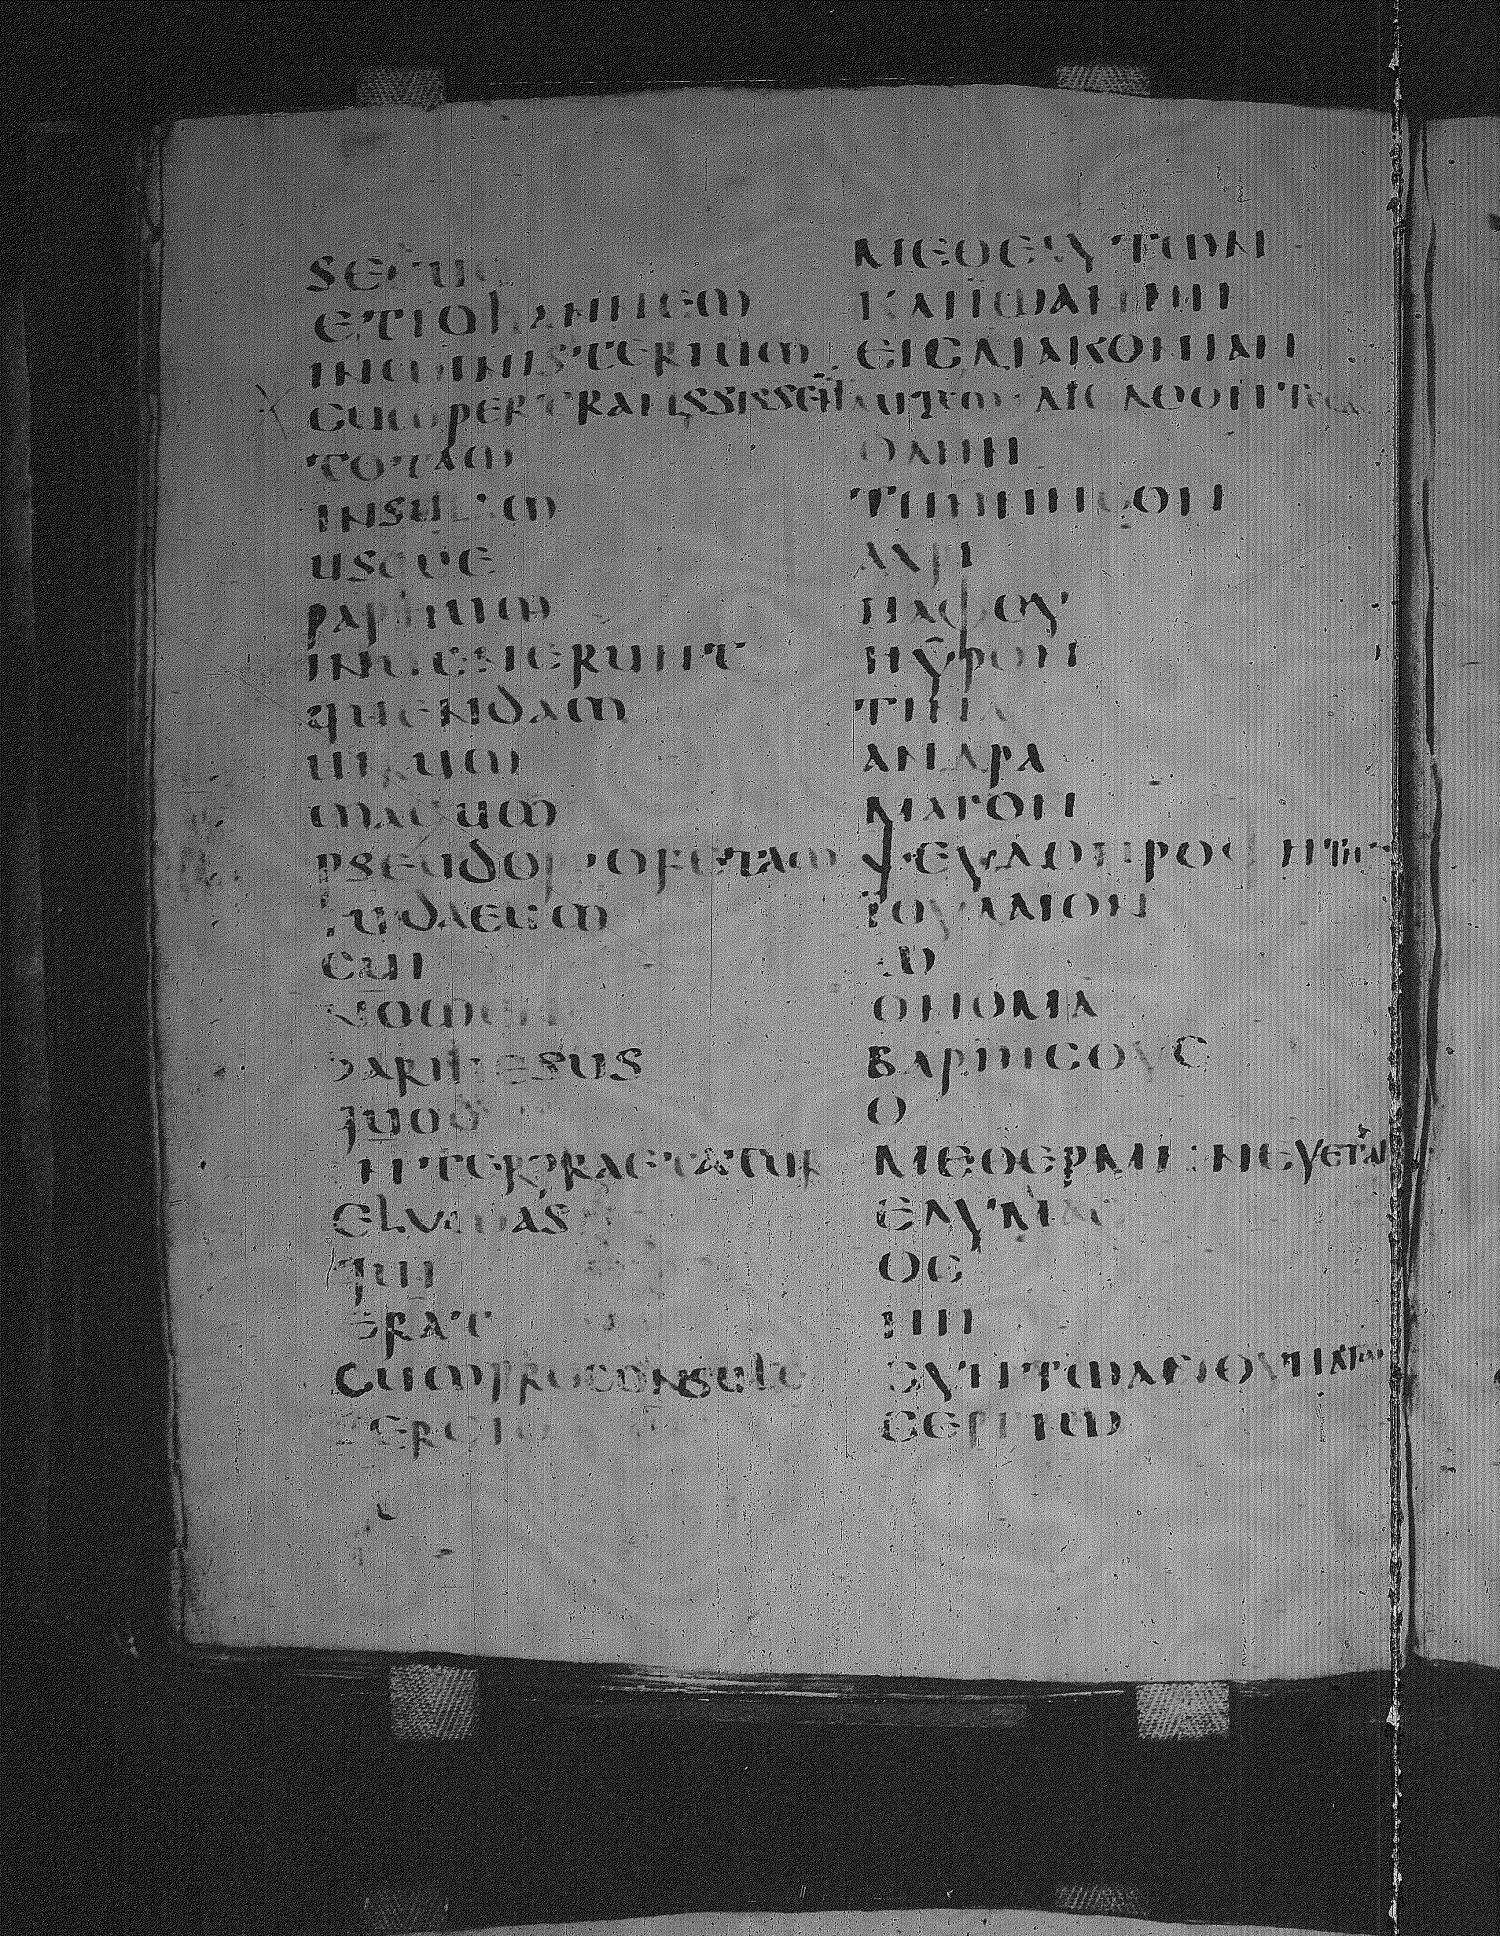 SECUM ΜΕΘΕΑΥΤΩΝ
ETIOHANNEM ΚΑΙΙΩΑΝΝΗΝ
INMINISTERIUM ΕΙΣΔΙΑΚΟΝΙΑΝ
CUMPERTRANSISSENT AUTEM ΔΙΕΛΘΟΝΤΕΣ
TOTAM ΟΛΗΝ
INSULAM ΤΗΝΝΗΣΟΝ
USQUE ΑΧΡΙ
PAPHUM ΠΑΦΟΥ
INUENERUNT ΗΥΡΟΝ
QUENDAM ΤΙΝΑ
UIRUM ΑΝΔΡΑ
MAGUM ΜΑΓΟΝ
PSEUDOPROFETAM ΨΕΥΔΟΠΡΟΦΗΤΗΝ
IUDAEUM ΙΟΥΔΑΙΟΝ
CUI Ω
NOMEN ΟΝΟΜΑ
BARIESUS ΒΑΡΙΗΣΟΥΣ
QUOD Ο
INTERPRAETATUR ΜΕΘΕΡΜΗΝΕΥΕΤΑΙ
ELYMAS ΕΛΥΜΑΣ
QUI ΟΣ
ERAT ΗΝ
CUMPROCONSULE ΣΥΝΤΩΑΝΘΥΠΑΤΩ
SERGIO ΣΕΡΓΙΩ